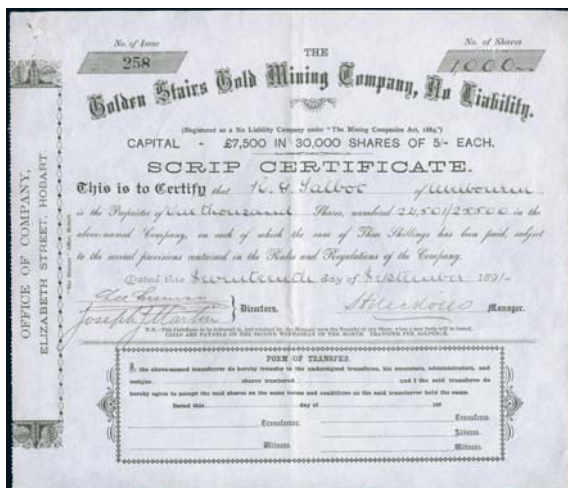 No. of Issue
258
No. of Shares
1,000
THE
Golden Stairs Gold Mining Company, No Liability.
(Registered as a No Liability Company under "The Mining Companies Act, 1884.")
CAPITAL - £7,500 IN 30,000 SHARES OF 5/- EACH.
SCRIP CERTIFICATE.
This is to Certify that K. G. Talbot of Melbourne
is the Proprietor of One thousand Shares, numbered 24,501/25,500 in the
above-named Company, on each of which the sum of Three Shillings has been paid, subject
to the several provisions contained in the Rules and Regulations of the Company.
Dated this Seventeenth day of September 1891
Joseph J. Martin
Directors.
Manager.
N.B.—This Certificate to be delivered to, and retained by, the Manager upon the Transfer of any Share, when a new Scrip will be issued.
CALLS ARE PAYABLE ON THE SECOND WEDNESDAY OF THE MONTH. TRANSFER FEE, SIXPENCE.
FORM OF TRANSFER.
I, the above-named transferror do hereby transfer to the undersigned transferee, his executors, administrators, and
assigns shares numbered and I the said transferee do
hereby agree to accept the said shares on the same terms and conditions as the said transferror held the same
Dated this day of 189
Transferror.
Witness.
Transferee.
Address.
Witness.
OFFICE OF COMPANY,
ELIZABETH STREET, HOBART.
"The Mercury" Office, Hobart